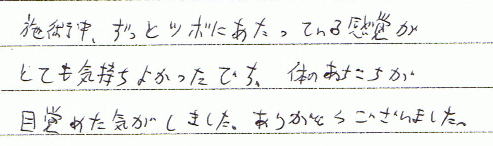 施術中、ずっとツボにあたっている感覚が
とても気持ちよかったです。体のあちこちが
目覚めた気がしました。ありがとうございました。